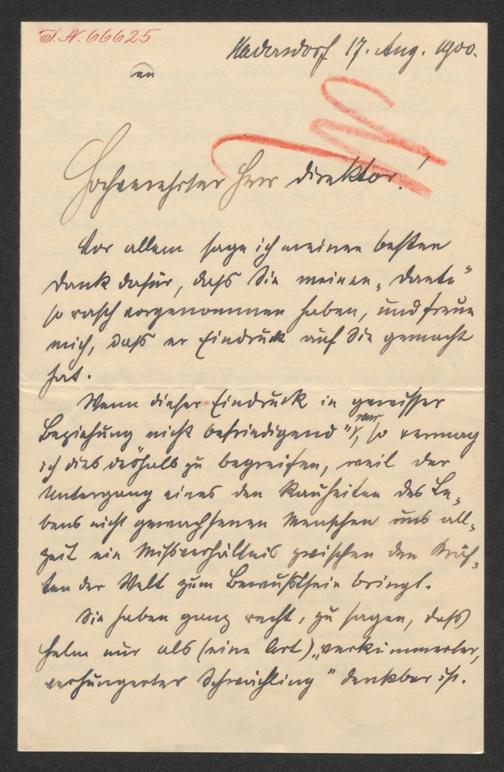 I.N. 66625
Hadersdorf 17. Aug. 1900.
an
Hochverehrter Herr Direktor!
Vor allem sage ich meinen besten
Dank dafür, daß Sie meinen „Dante“
so rasch vorgenommen haben, und freue
mich, daß er Eindruck auf Sie gemacht
hat.
Wenn dieser Eindruck in gewisser
Beziehung nicht befriedigend war, so vermag
ich dies deshalb zu begreifen, weil der
Untergang eines den Rauheiten des Le-
bens nicht gewachsenen Menschen uns all-
zeit ein Mißverhältnis zwischen den Kräf-
ten der Welt zum Bewußtsein bringt.
Sie haben ganz recht, zu sagen, daß
Helm nur als (eine Art) „verkümmerter,
verhungerter Schwächling“ denkbar ist.